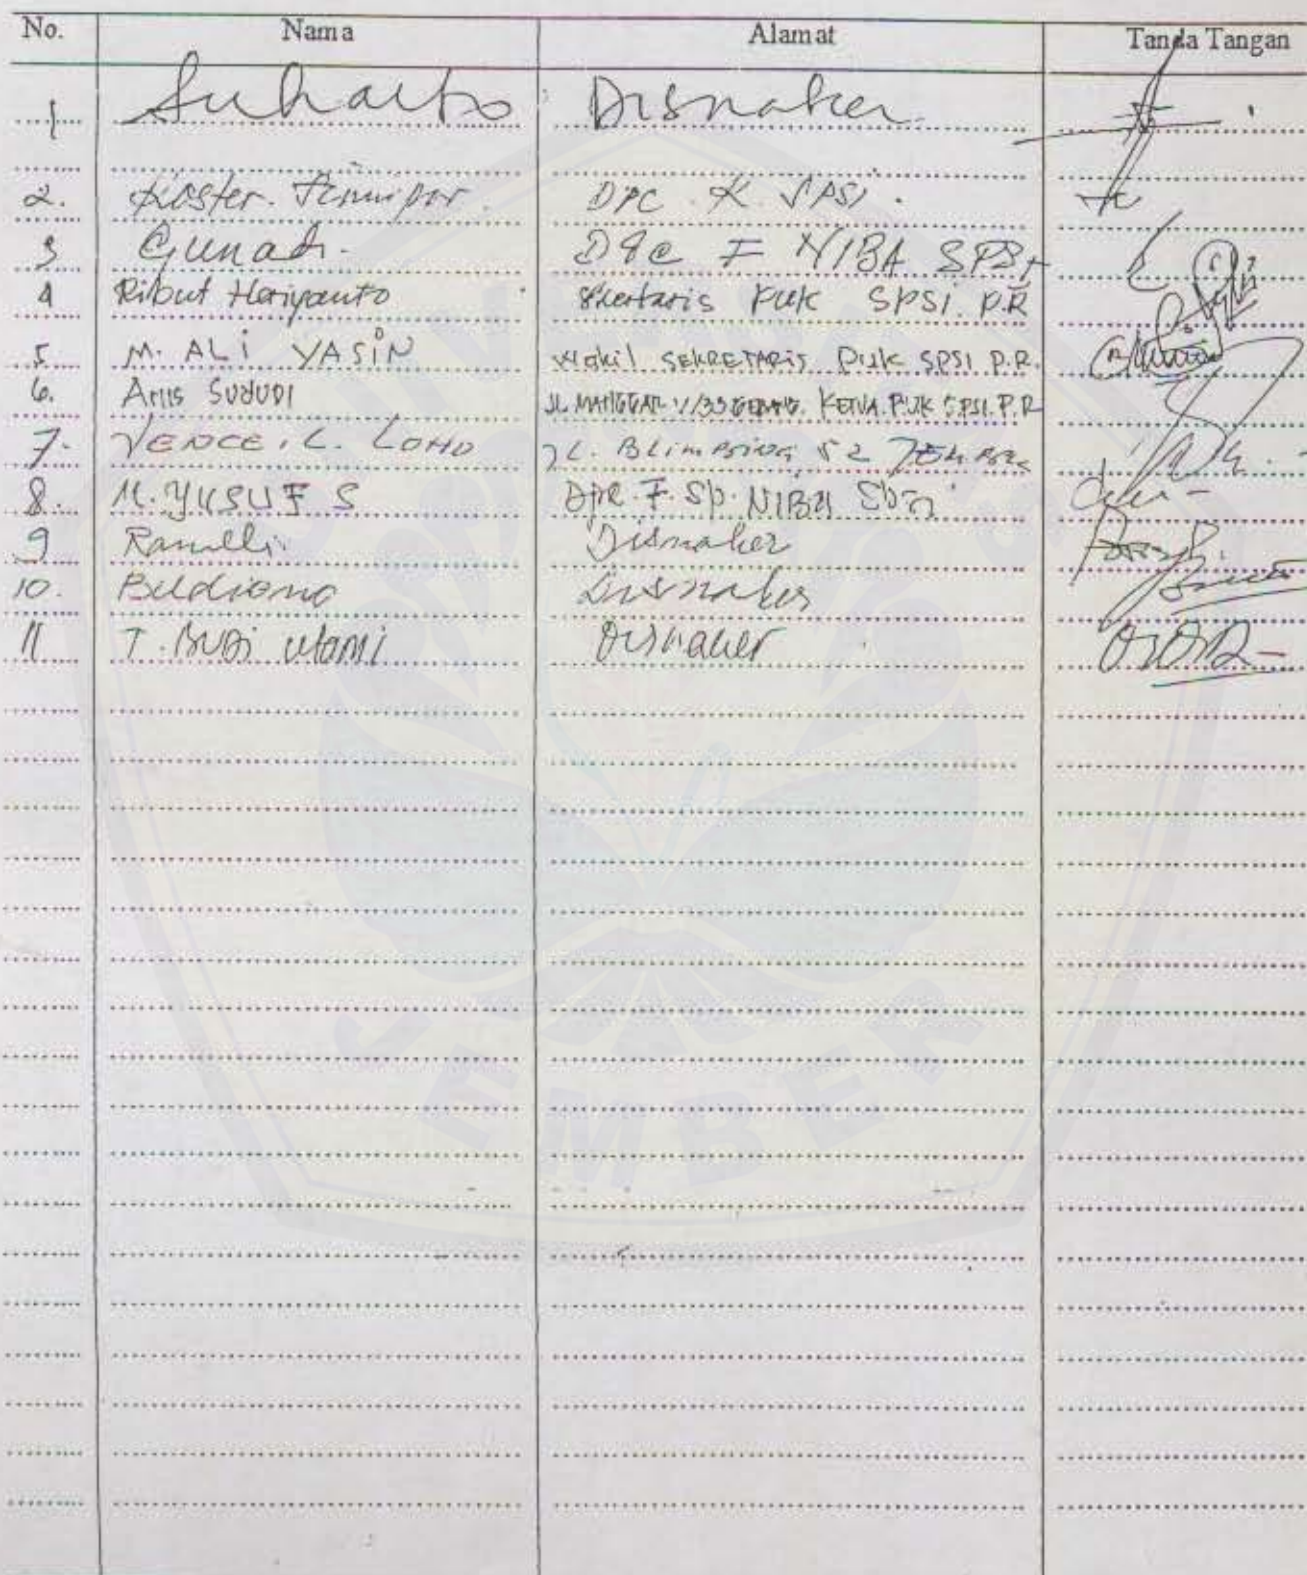 No. Nama Alamat Tanda Tangan
1 Suharto Disnaker
2. DPC K SPSI.
3 Gunadi. F NIBA SPSI
4 Ribut Heriyanto PUK SPSI. P.R
5 M. ALI YASIN Wakil SEKRETARIS PUK SPSI P.R.
6. Aris SUDUDI JL MANGGAR V/33 GEBANG. KETUA PUK SPSI. P.R
7. VENCE. L. LOHO JL. BLimBing 52 JEMBER
8. M. YUSUF S F. SP. NIBA SPSI
9 Ramelli Disnaker
10. Budiono Disnaker
11 T. BUDI UTAMI Disnaker
JEMBER